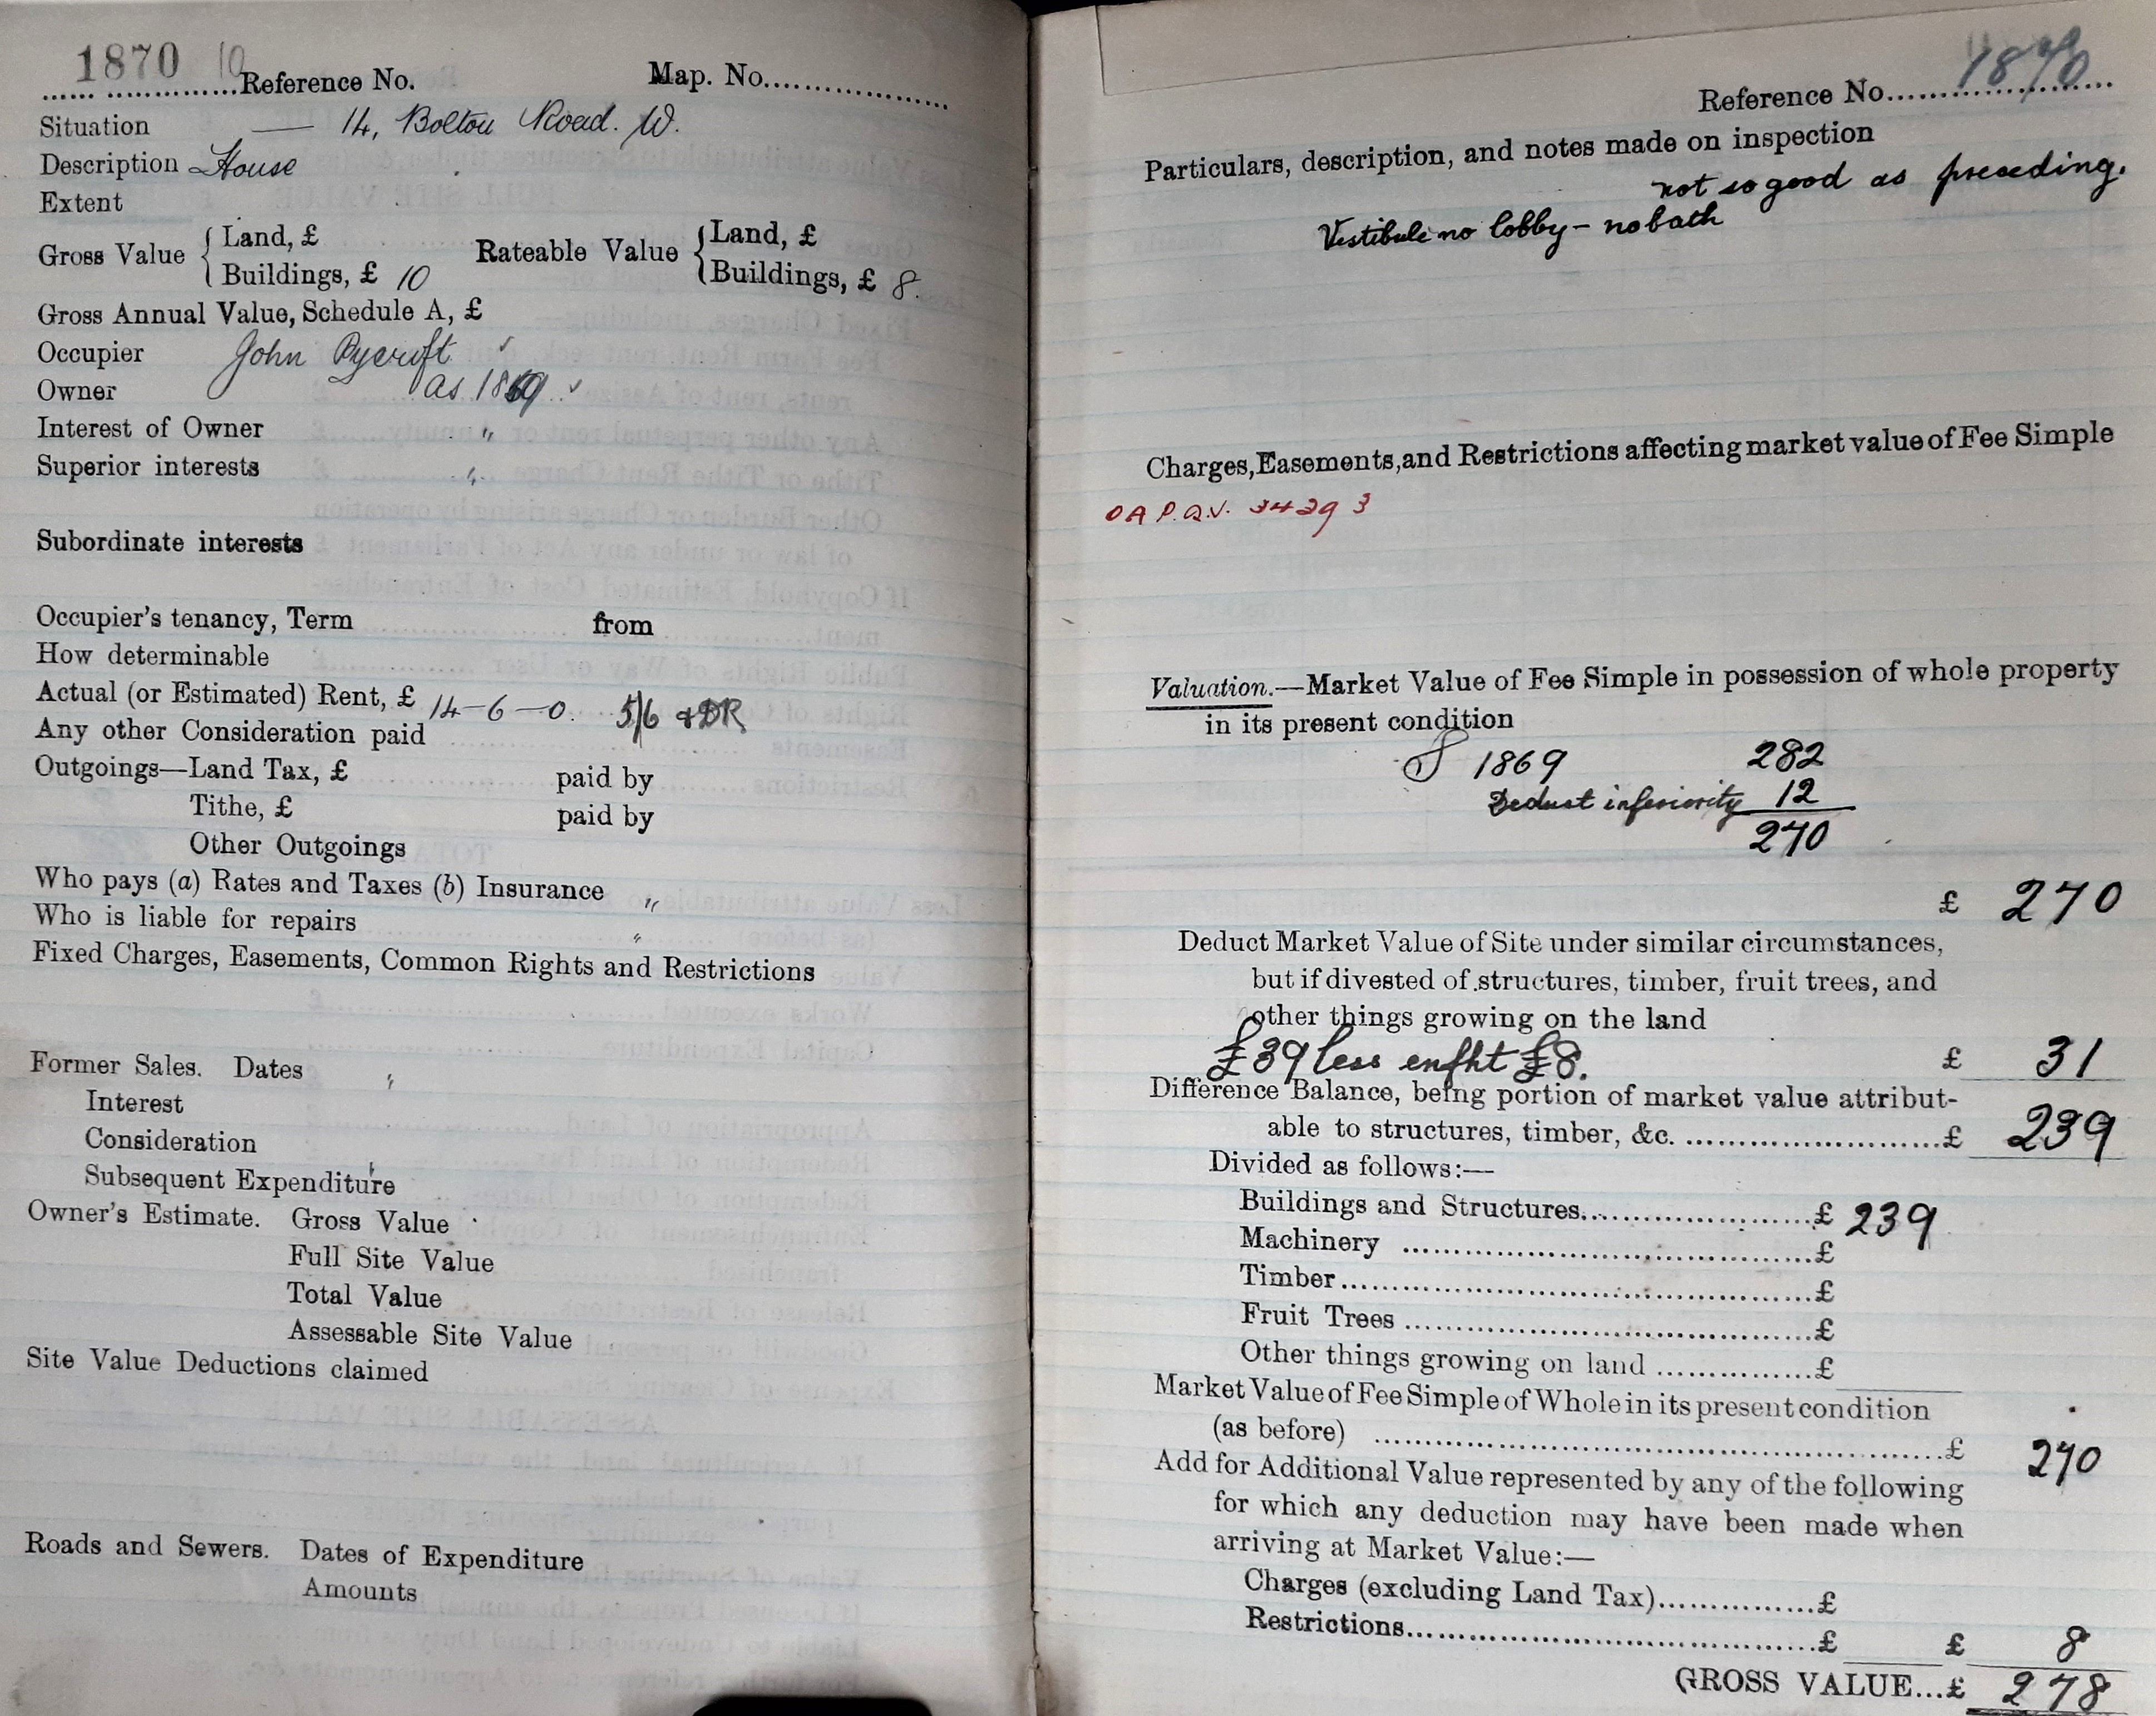 1870 10 Reference No. Map. No.
Situation — 14, Bolton Road. W.
Description House
Extent
Gross Value { Land, £ Rateable Value { Land, £
Buildings, £ 10 Buildings, £ 8.
Gross Annual Value, Schedule A, £
Occupier John Pycroft ✓
Owner as 1869 ✓
Interest of Owner "
Superior interests "
Subordinate interests
Occupier's tenancy, Term from
How determinable
Actual (or Estimated) Rent, £ 14-6-0. 5/6 & DR
Any other Consideration paid
Outgoings—Land Tax, £ paid by
Tithe, £ paid by
Other Outgoings
Who pays (a) Rates and Taxes (b) Insurance "
Who is liable for repairs "
Fixed Charges, Easements, Common Rights and Restrictions
Former Sales. Dates
Interest
Consideration
Subsequent Expenditure
Owner's Estimate. Gross Value
Full Site Value
Total Value
Assessable Site Value
Site Value Deductions claimed
Roads and Sewers. Dates of Expenditure
Amounts
Reference No. 1870
Particulars, description, and notes made on inspection
not so good as preceding.
Vestibule no lobby – no bath
Charges, Easements, and Restrictions affecting market value of Fee Simple
O A P.Q.V. 3429 3
Valuation.—Market Value of Fee Simple in possession of whole property
in its present condition
1869 282
Deduct inferiority 12
270
£ 270
Deduct Market Value of Site under similar circumstances,
but if divested of structures, timber, fruit trees, and
other things growing on the land
£39 less enfht £8. £ 31
Difference Balance, being portion of market value attribut-
able to structures, timber, &c. £ 239
Divided as follows:—
Buildings and Structures £ 239
Machinery £
Timber £
Fruit Trees £
Other things growing on land £
Market Value of Fee Simple of Whole in its present condition
(as before) £ 270
Add for Additional Value represented by any of the following
for which any deduction may have been made when
arriving at Market Value:—
Charges (excluding Land Tax) £
Restrictions £ £ 8
GROSS VALUE...£ 278